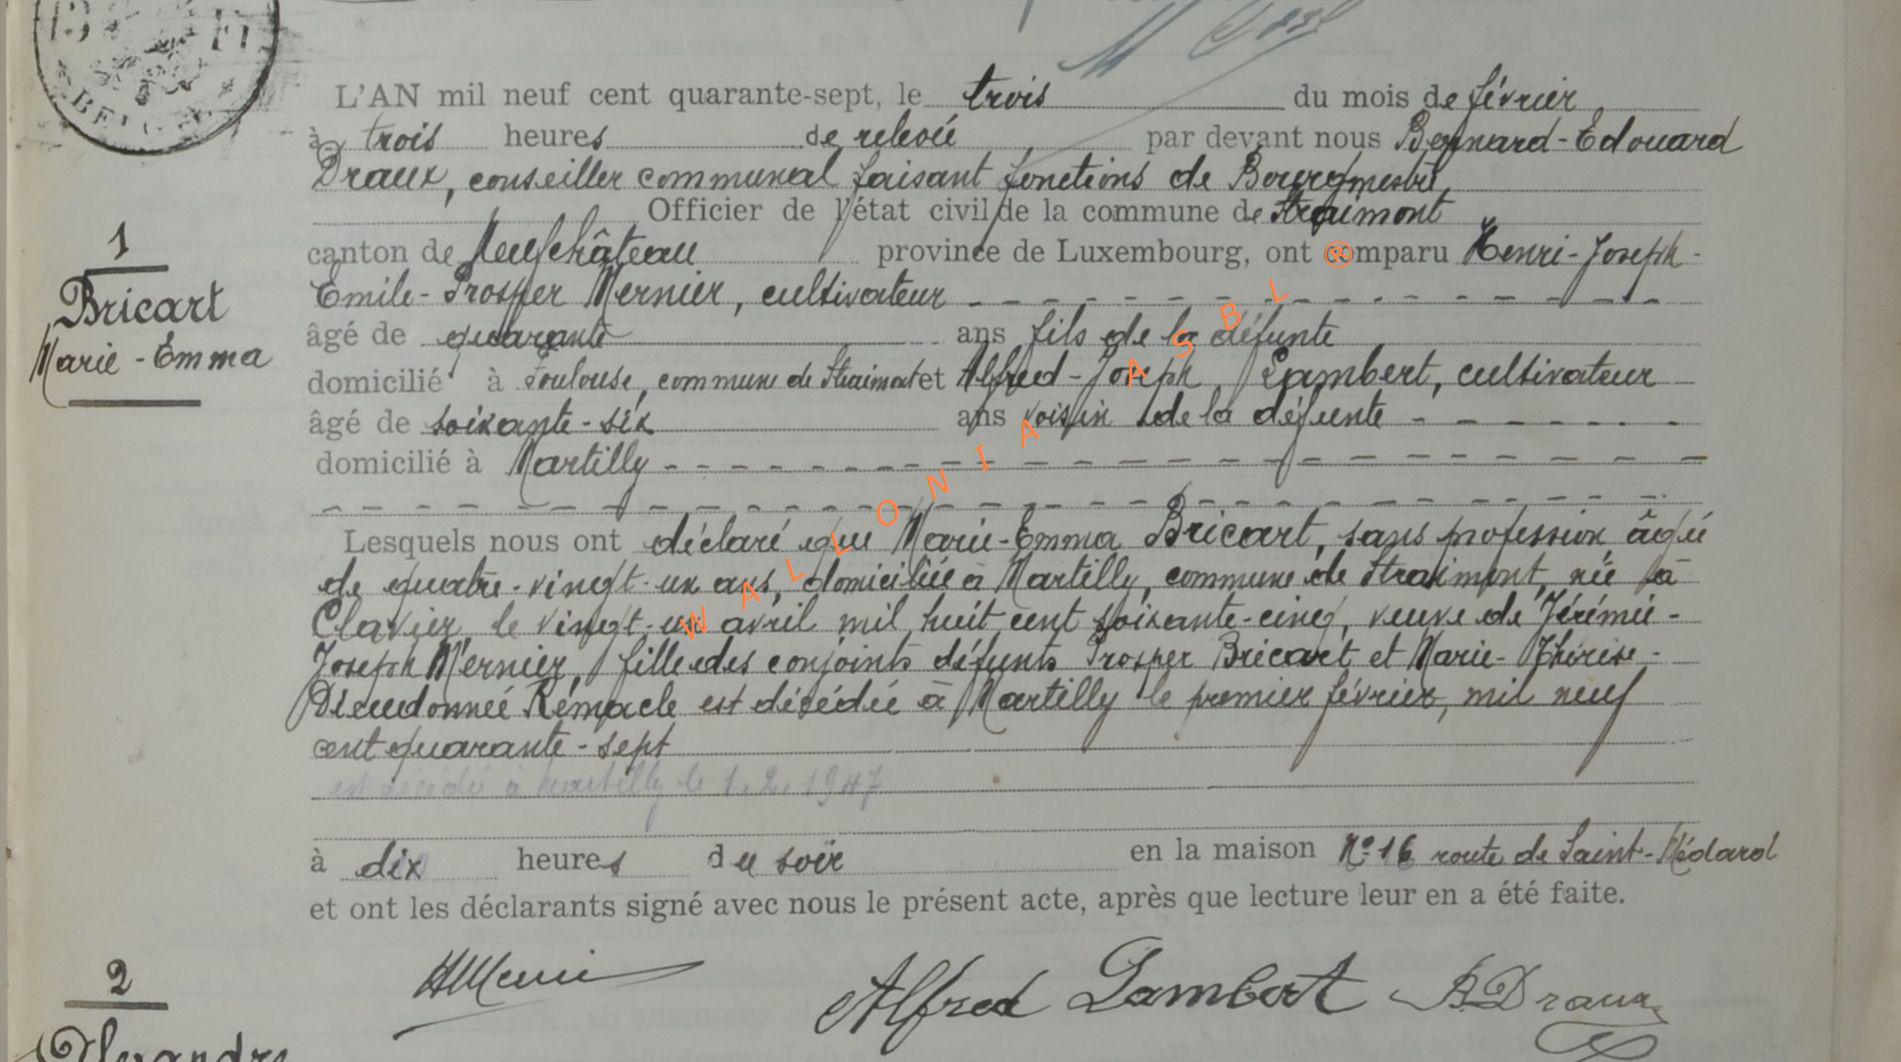 L'AN mil neuf cent quarante-sept, le trois du mois de février
à trois heures de relevée par devant nous Bernard-Edouard
Draux, conseiller communal faisant fonctions de Bourgmestre,
Officier de l'état civil de la commune de Straimont
canton de Neufchâteau province de Luxembourg, ont comparu Henri-Joseph-
Emile-Prosper Mernier, cultivateur
âgé de quarante ans fils de la défunte
domicilié à Toulouse, commune de Straimont et Alfred-Joseph Lambert, cultivateur
âgé de soixante-six ans voisin de la défunte
domicilié à Martilly
Lesquels nous ont déclaré que Marie-Emma Bricart, sans profession âgée
de quatre-vingt-un ans, domiciliée à Martilly, commune de Straimont, née à
Clavier, le vingt-un avril mil huit cent soixante-cinq, veuve de Jérémie-
Joseph Mernier, fille des conjoints défunts Prosper Bricart et Marie-Thérèse-
Dieudonnée Remacle est décédée à Martilly le premier février, mil neuf
cent quarante-sept
est décédée à Martilly le 1.2.1947
à dix heures du soir en la maison N° 16 route de Saint-Médard
et ont les déclarants signé avec nous le présent acte, après que lecture leur en a été faite.
Alfred Lambert B Draux
1
Bricart
Marie-Emma
2
Alexandre
BELG
WALLONIA ASBL ®